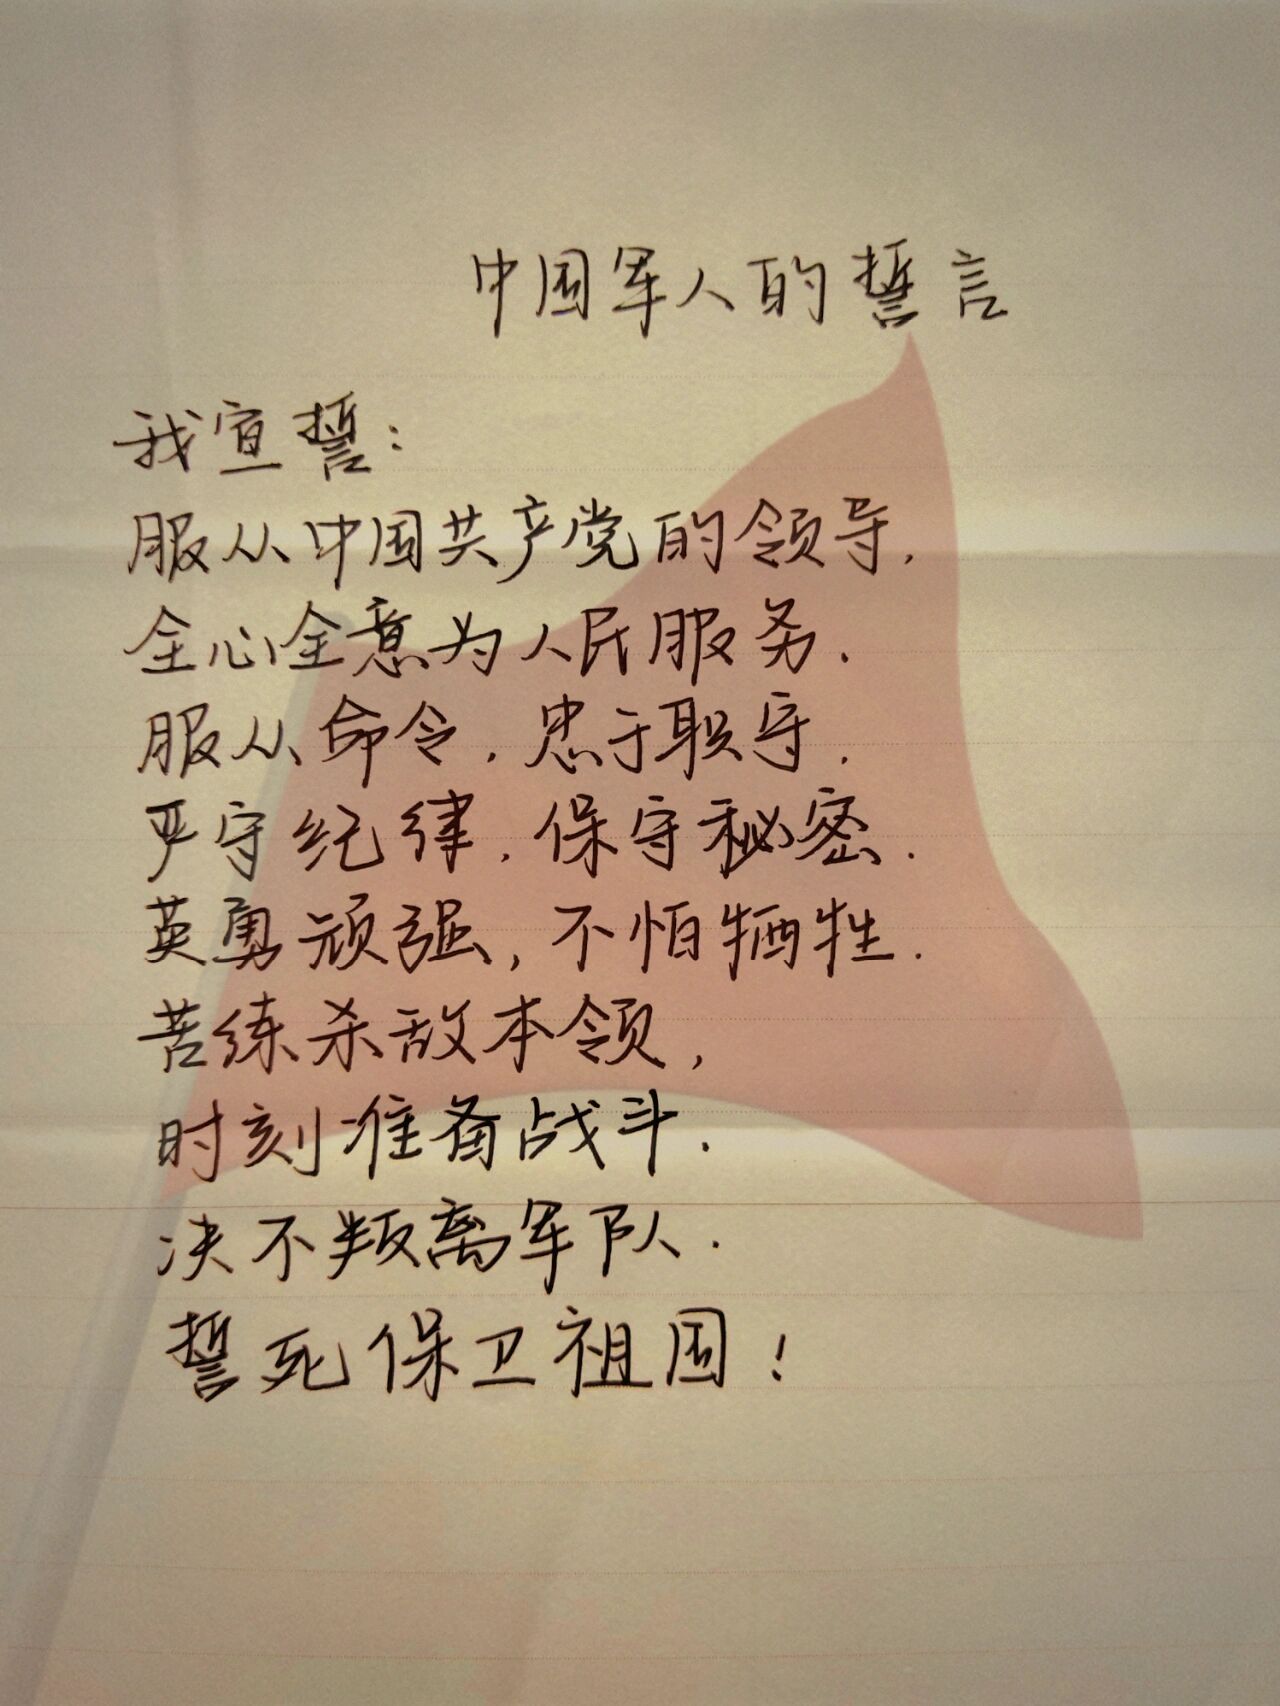 中国军人的誓言
我宣誓：
服从中国共产党的领导.
全心全意为人民服务.
服从命令.忠于职守.
严守纪律.保守秘密.
英勇顽强,不怕牺牲.
苦练杀敌本领,
时刻准备战斗.
决不叛离军队.
誓死保卫祖国!